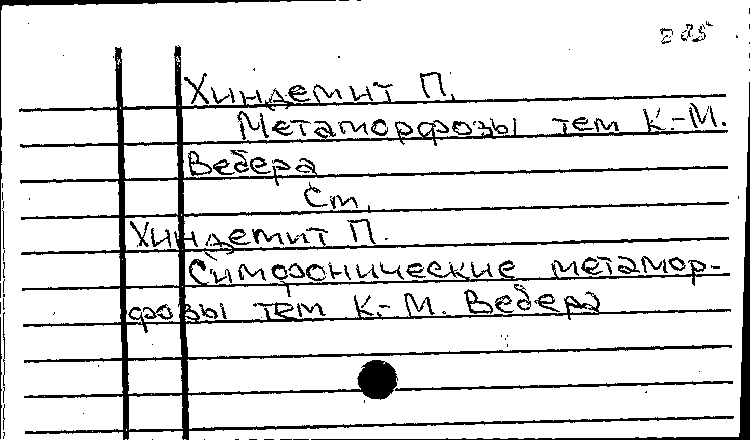 Хиндемит П.
Метаморфозы тем К.-М.
Вебера
Ст.
Хиндемит П.
Симфонические метамор-
фозы тем К.-М. Вебера